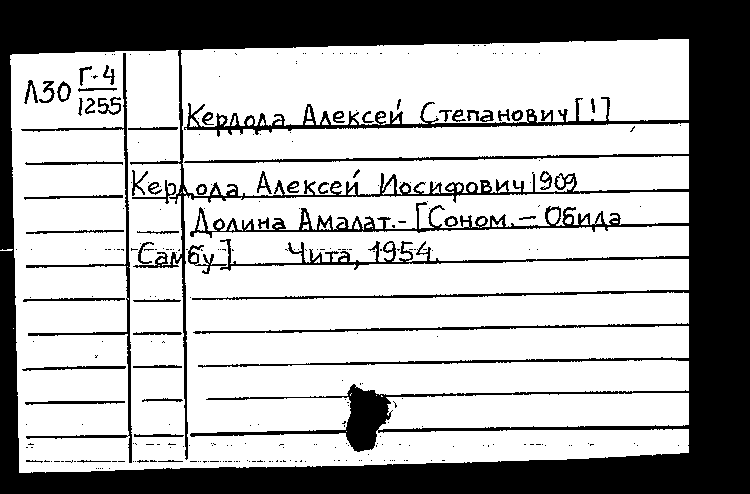 Л30 Г-4
1255
Кердода, Алексей Степанович [!]
Кердода, Алексей Иосифович 1909
Долина Амалат. - [Соном. - Обида
Самбу]. Чита, 1954.